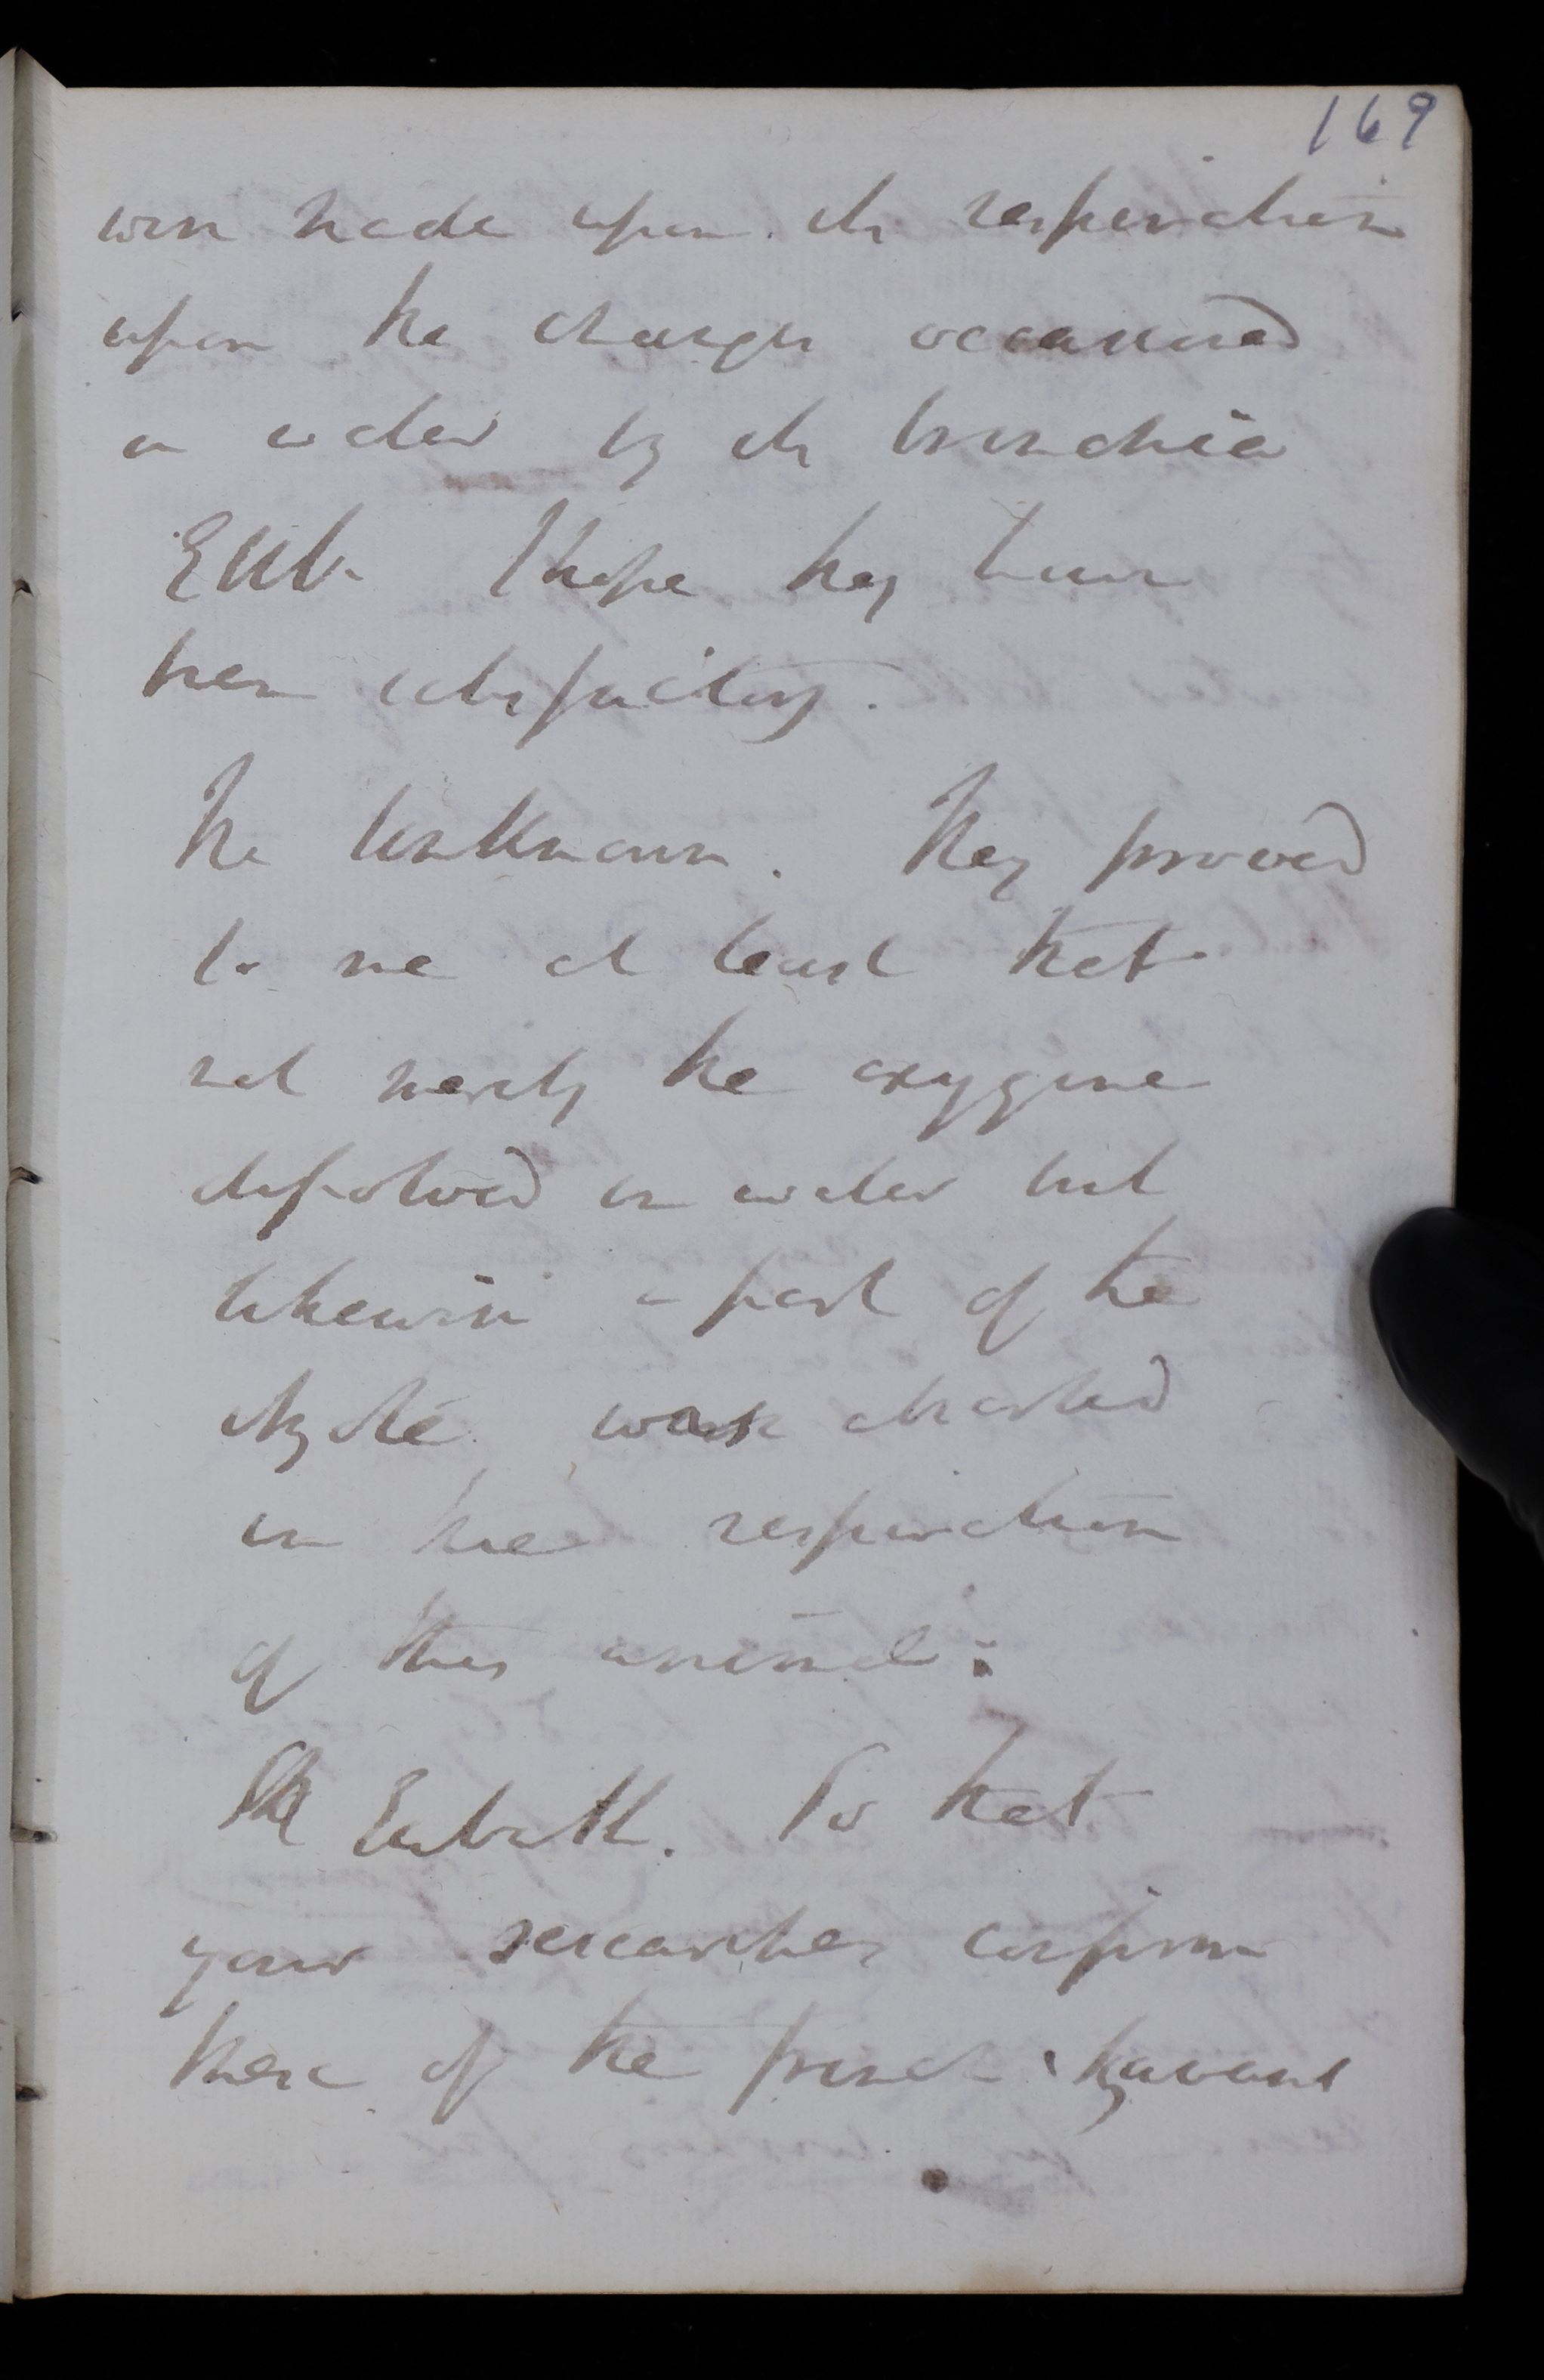 169
were made upon its respiration
upon the changes occasioned
in water by its bronchia
Eub. I hope they have
been satisfactory.
The Unknown. They proved
to me at least that
not merely the oxygene
dissolved in water but
likewise a part of the
azote was absorbed
in the respiration
of this animal:
Eubath. So that
your researches confirm
those of the french savans